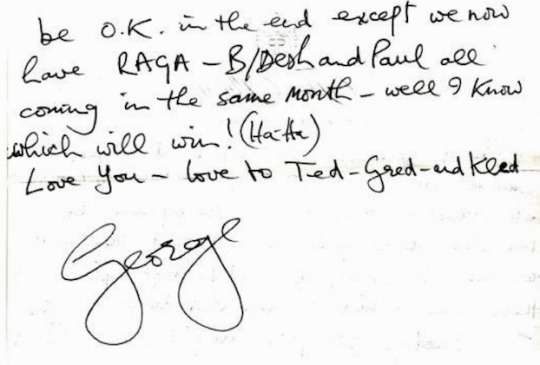 be O.K. in the end except we now
have RAGA - B/Desh and Paul all
coming in the same month - well I know
which will win! (Ha-Ha)
Love You - love to Ted - Gred - and Kled
George